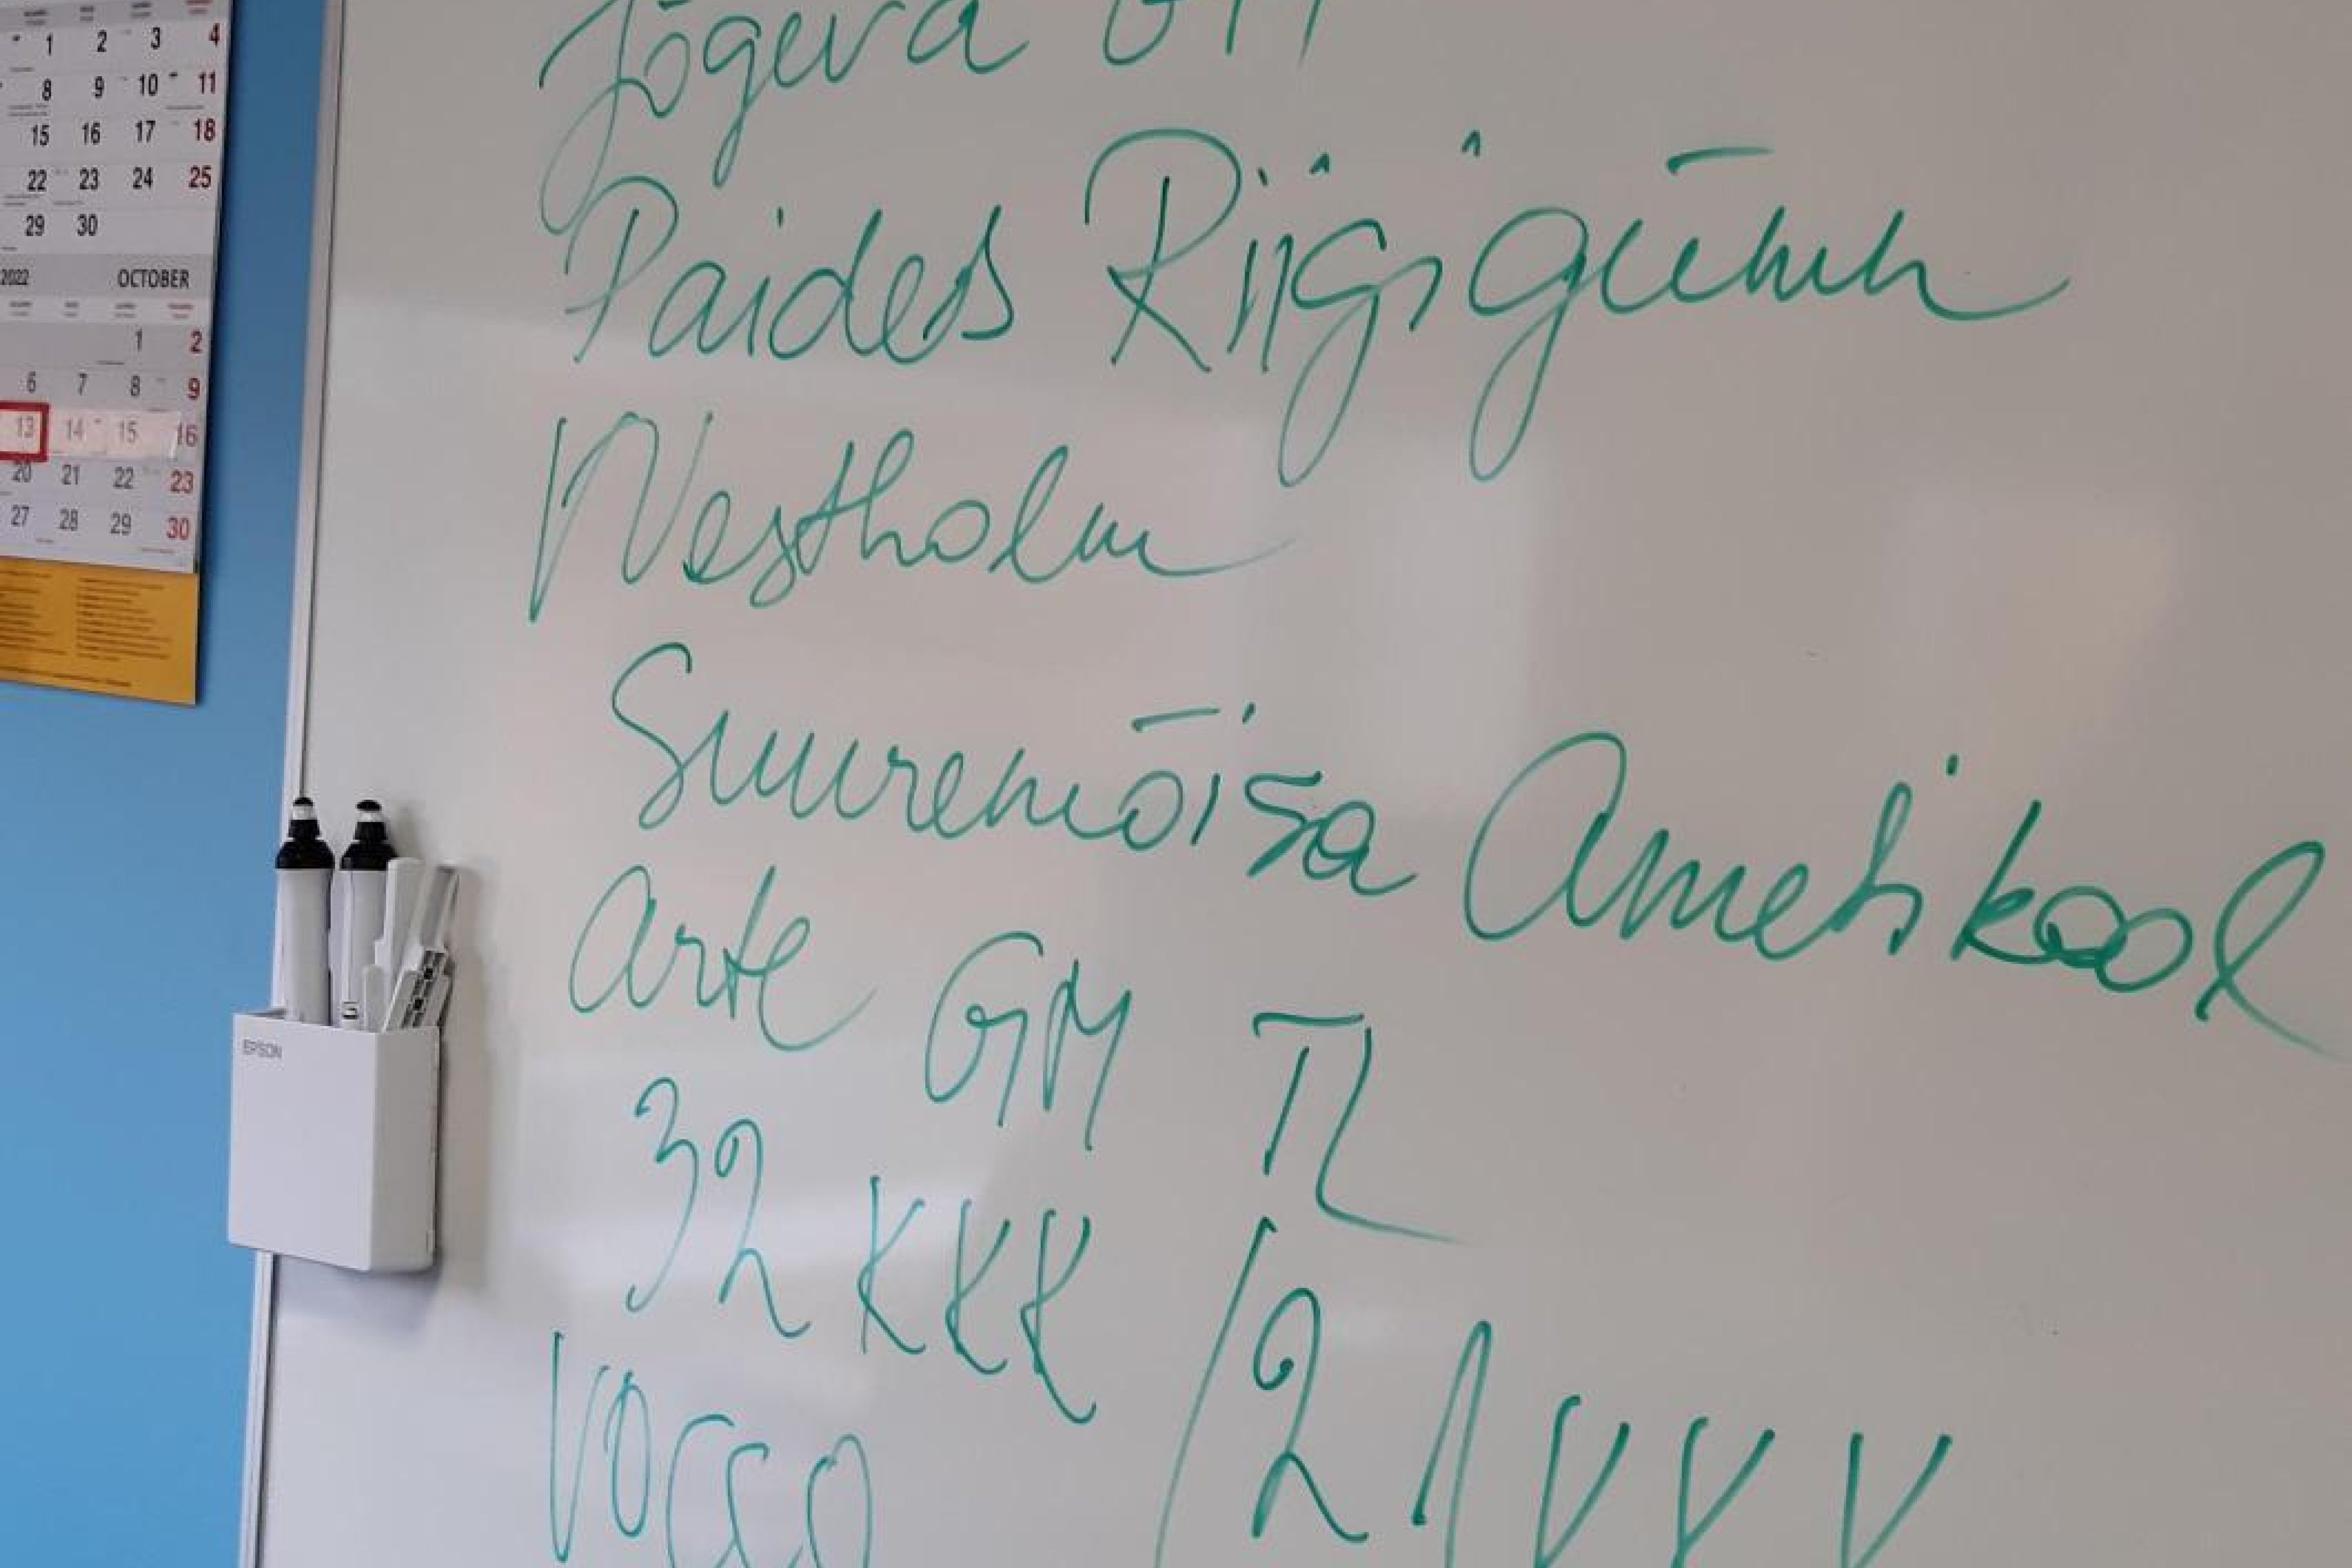 1 2 3 4
8 9 10 11
15 16 17 18
22 23 24 25
29 30
2022 OCTOBER
1 2
6 7 8 9
13 14 15 16
20 21 22 23
27 28 29 30
EPSON
Jõgeva
Paides Riigigümn
Westholm
Suuremõisa Ametikool
Arte GM TL
32 KKK / 21
VOCO